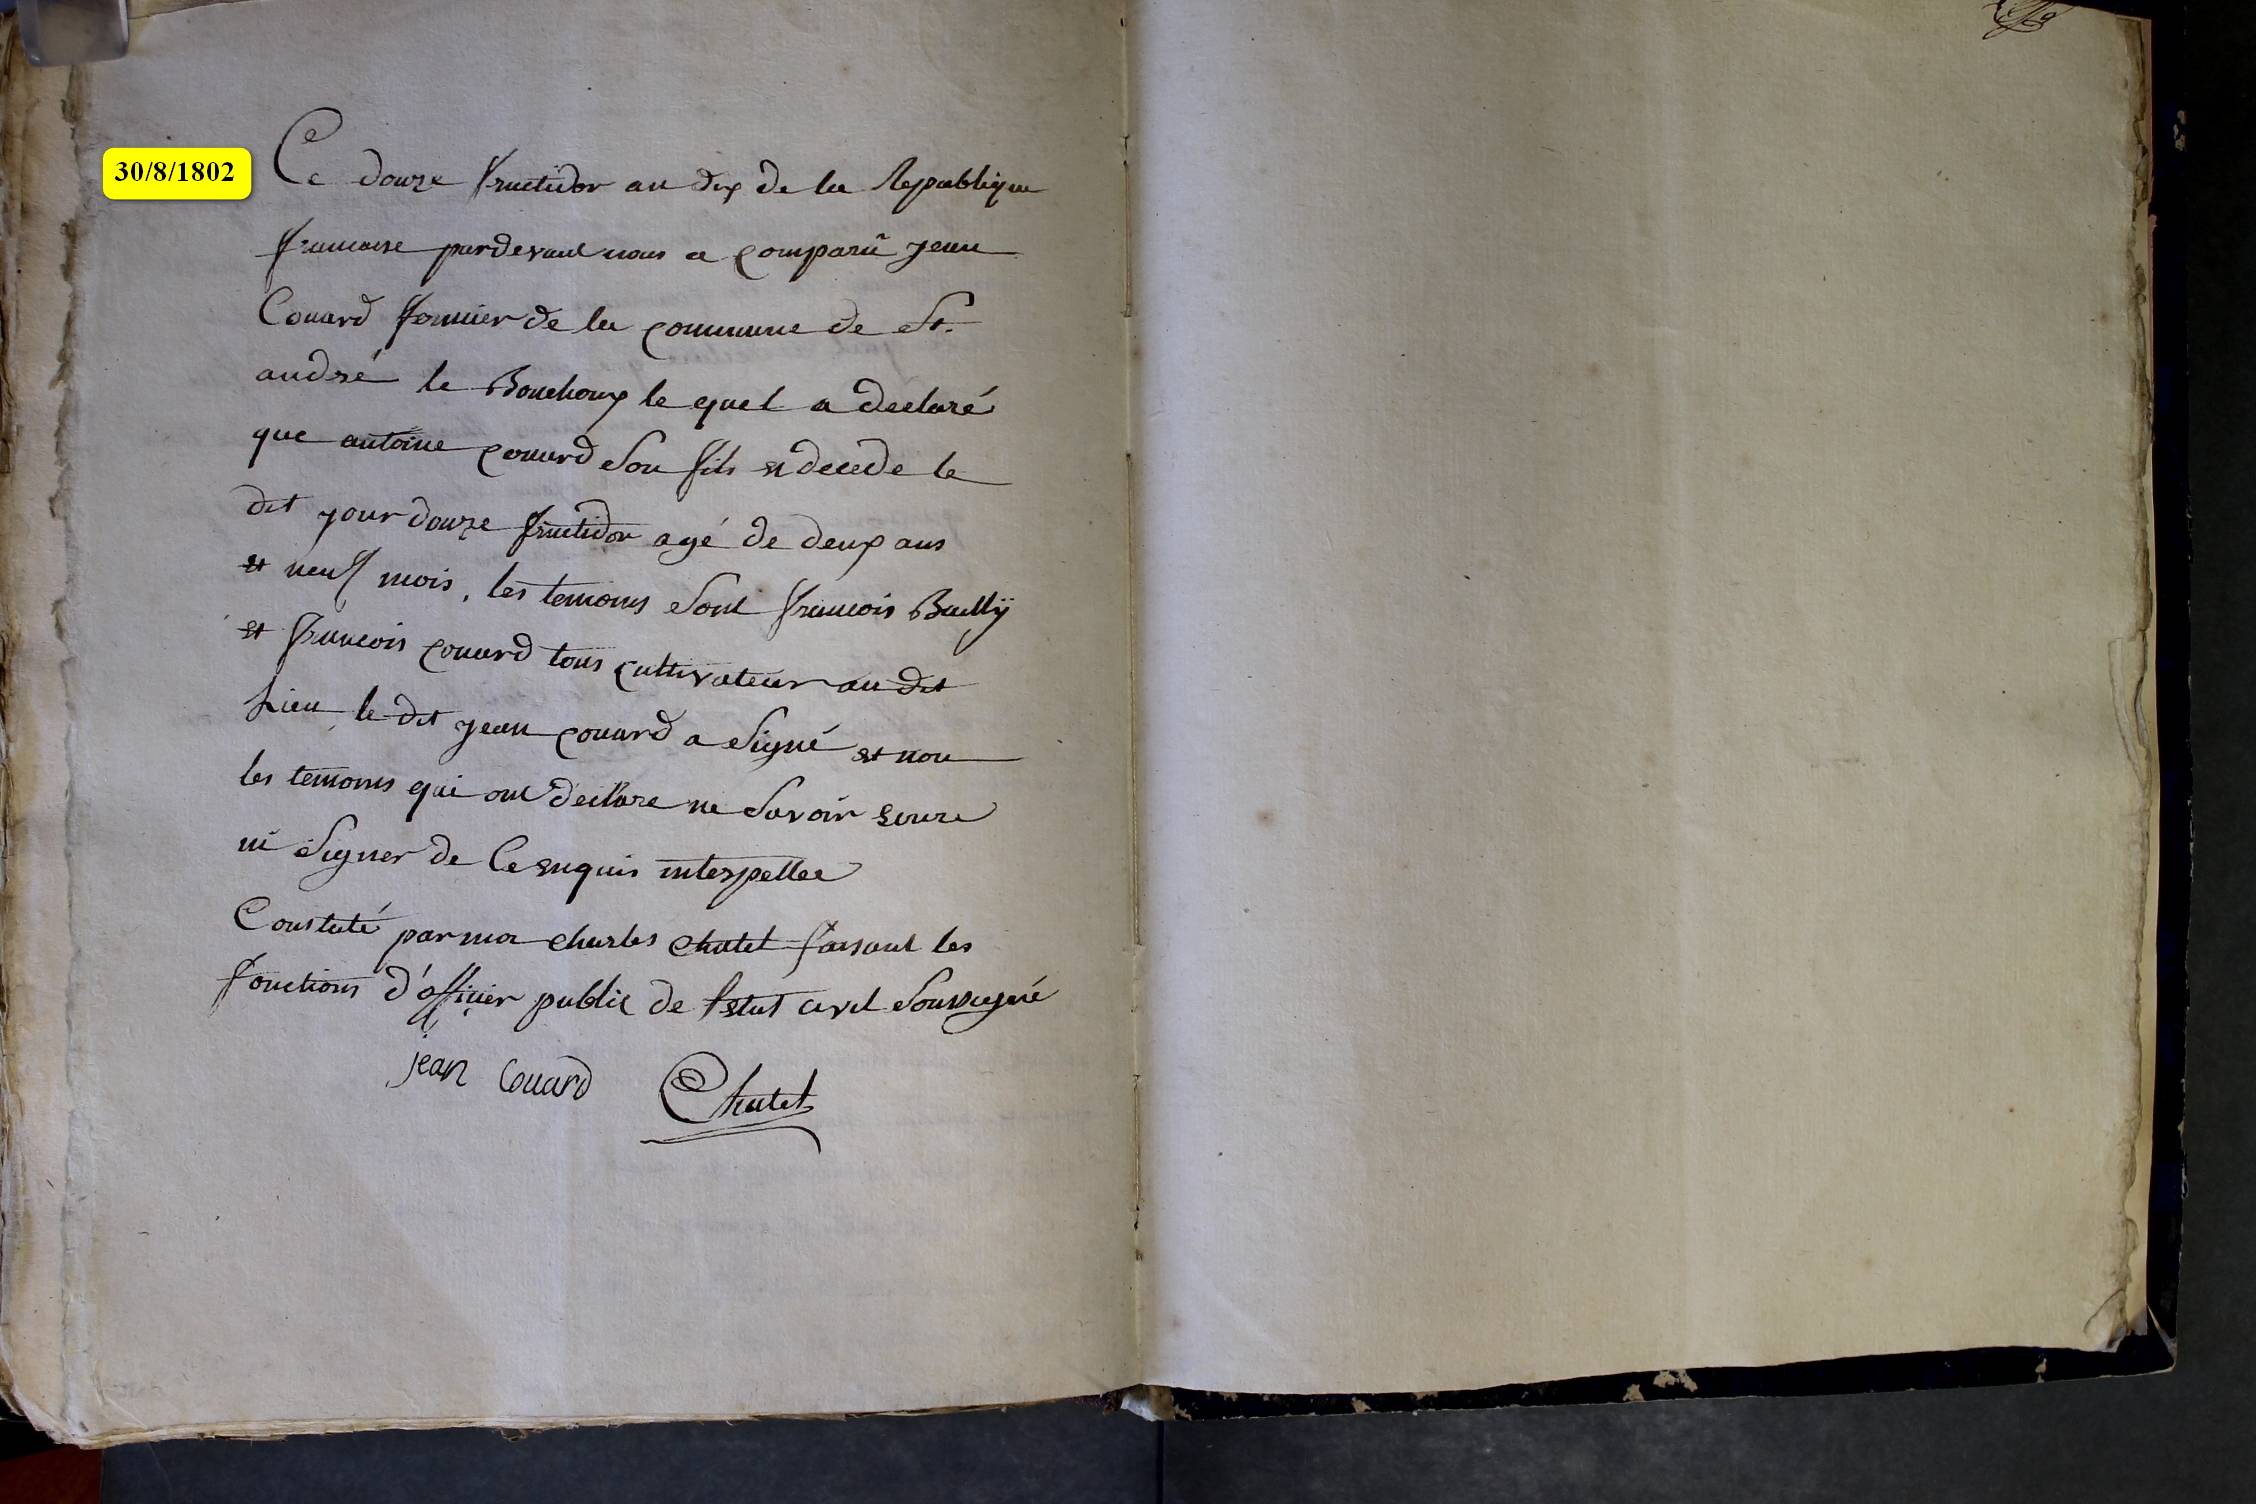 30/8/1802
Ce douze fructidor an dix de la Republique
francoise pardevant nous a comparû jean
Couard fermier de la commune de St.
andré le Bouchoux le quel a declaré
que antoine couard son fils et decede le
dit jour douze fructidor agé de deux ans
et neuf mois, les temoins sont francois Bullÿ
et francois couard tous cultivateur au dit
Lieu, le dit jean couard a signé et non
les temoins qui ont declare ne savoir ecrire
ni signer de ce enquis interpellee
Constaté par moi charles chatel faisant les
fonctions d'officier public de l'etat civil soussigné
jean Couard Chatel